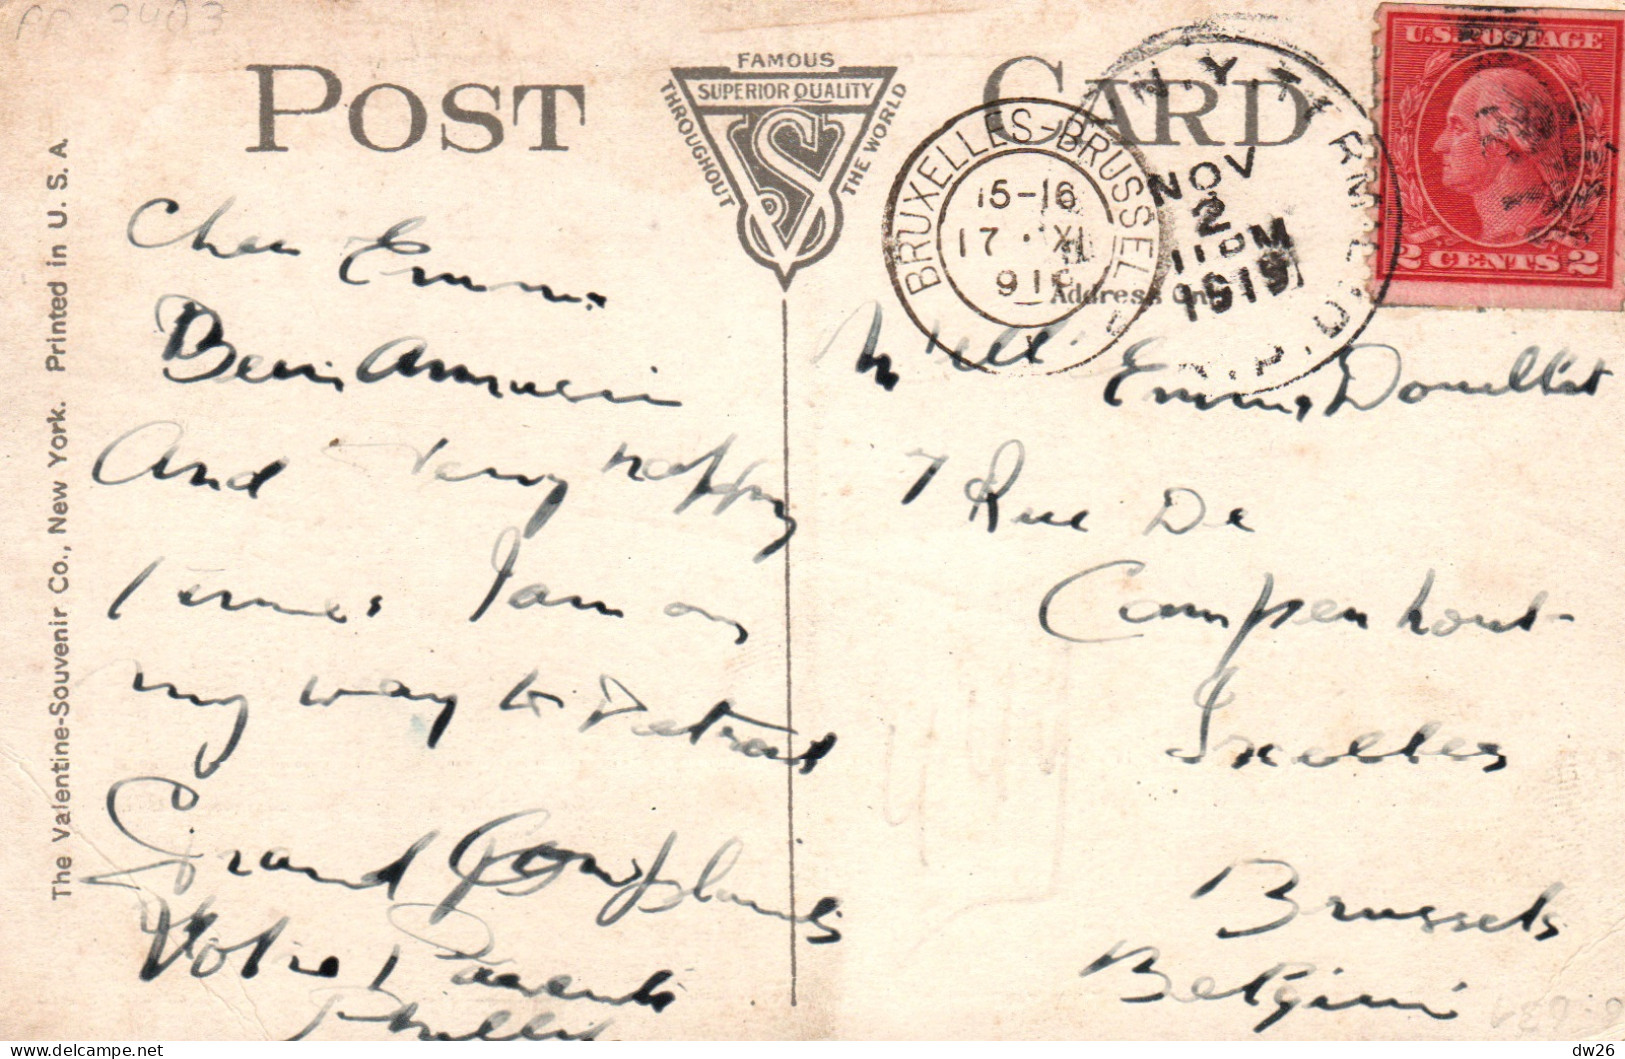 PP 3403
POST CARD
FAMOUS
SUPERIOR QUALITY
THROUGHOUT
THE WORLD
VS
The Valentine-Souvenir Co., New York. Printed in U. S. A.
U.S. POSTAGE
2 CENTS 2
N.Y. TERMINAL
NOV
2
11 PM
1919
R.P.O.
BRUXELLES-BRUSSEL
15-16
17 · XI
Address Only
Cher Emma
Bien
And very happy
I am on
my way to Detroit
Grand Compliments
Votre Parents
Phillip
Mell Emma
7 Rue De
Campenhout
Ixelles
Brussels
Belgium
dw26